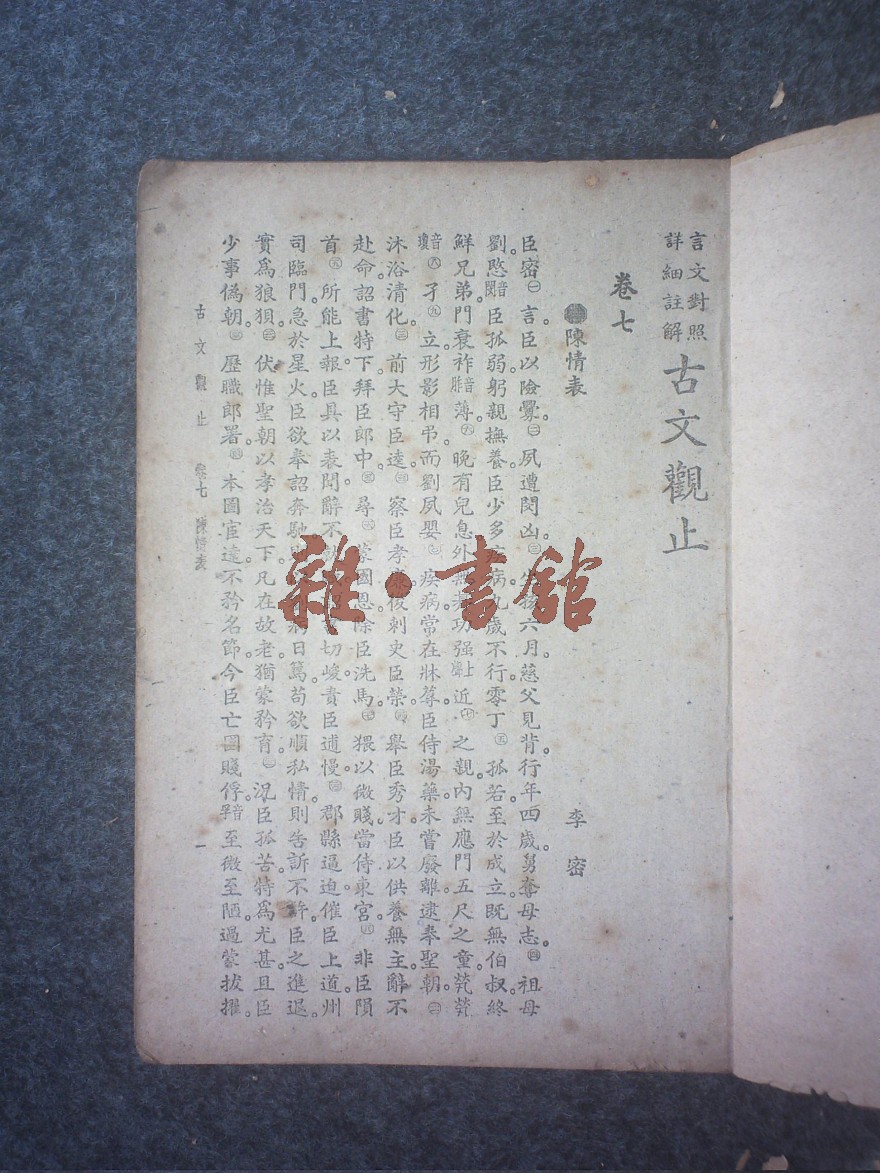 言文對照
詳細註解
古文觀止
卷七
陳情表
李密
臣密㊀言臣以險釁。㊁夙遭閔凶。㊂生孩六月。慈父見背。行年四歲。舅奪母志。㊃祖母
劉愍音閔臣孤弱。躬親撫養。臣少多疾病。九歲不行。零丁㊄孤苦。至於成立。既無伯叔。終
鮮兄弟。門衰祚音胙薄。㊅晚有兒息。外無朞功强上聲近㊉之親。內無應門五尺之童。煢煢
音瓊㊇孑㊈立。形影相弔。而劉夙嬰疾病。常在牀蓐。臣侍湯藥。未嘗廢離。逮奉聖朝。
沐浴清化。前大守臣逵察臣孝廉。後刺史臣榮舉臣秀才。臣以供養無主。辭不
赴命。詔書特下。拜臣郎中。尋蒙國恩。除臣洗馬。猥以微賤。當侍東宮。非臣隕
首所能上報。臣具以表聞。辭不切峻。責臣逋慢。郡縣逼迫。催臣上道。州
司臨門。急於星火。臣欲奉詔奔馳。日篤。苟欲順私情。則告訴不許。臣之進退。
實為狼狽。伏惟聖朝以孝治天下。凡在故老。猶蒙矜育。況臣孤苦。特為尤甚。且臣
少事偽朝。歷職郎署。本圖宦達。不矜名節。今臣亡國賤俘。音孚至微至陋。過蒙拔擢。
古文觀止 卷七 陳情表 一
雜·書館